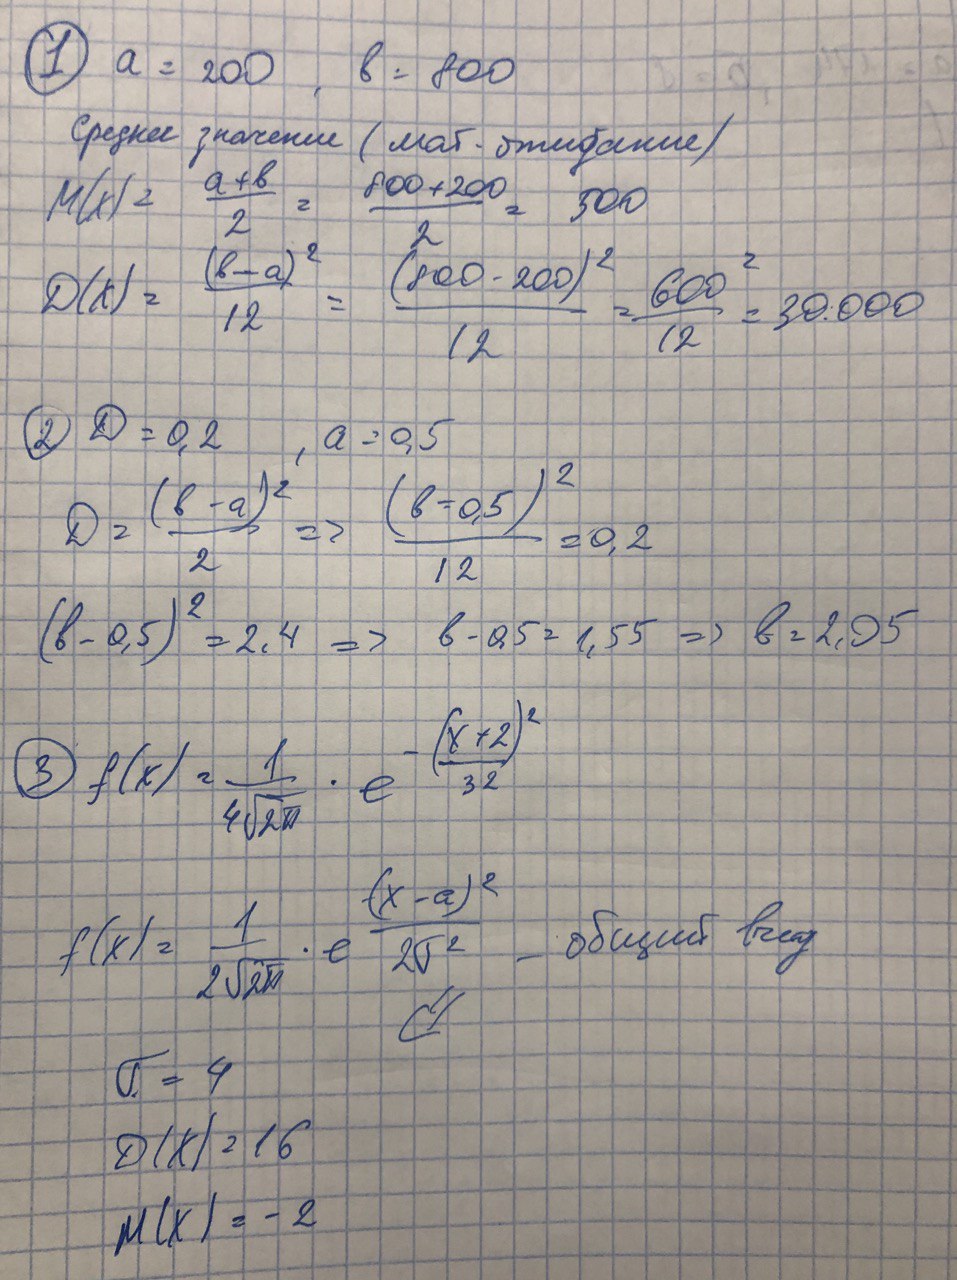 1 a = 200 , b = 800
Среднее значение (мат. ожидание)
M(x) = (a+b)/2 = (800+200)/2 = 500
D(x) = (b-a)²/12 = (800-200)²/12 = 600²/12 = 30.000
2 D = 0,2 , a = 0,5
D = (b-a)²/2 => (b-0,5)²/12 = 0,2
(b-0,5)² = 2,4 => b-0,5 = 1,55 => b = 2,05
3 f(x) = 1/(4√2π) · e^(-(x+2)²/32)
f(x) = 1/(2√2π) · e^((x-a)²/2σ²) - общий вид
σ = 4
D(x) = 16
M(x) = -2